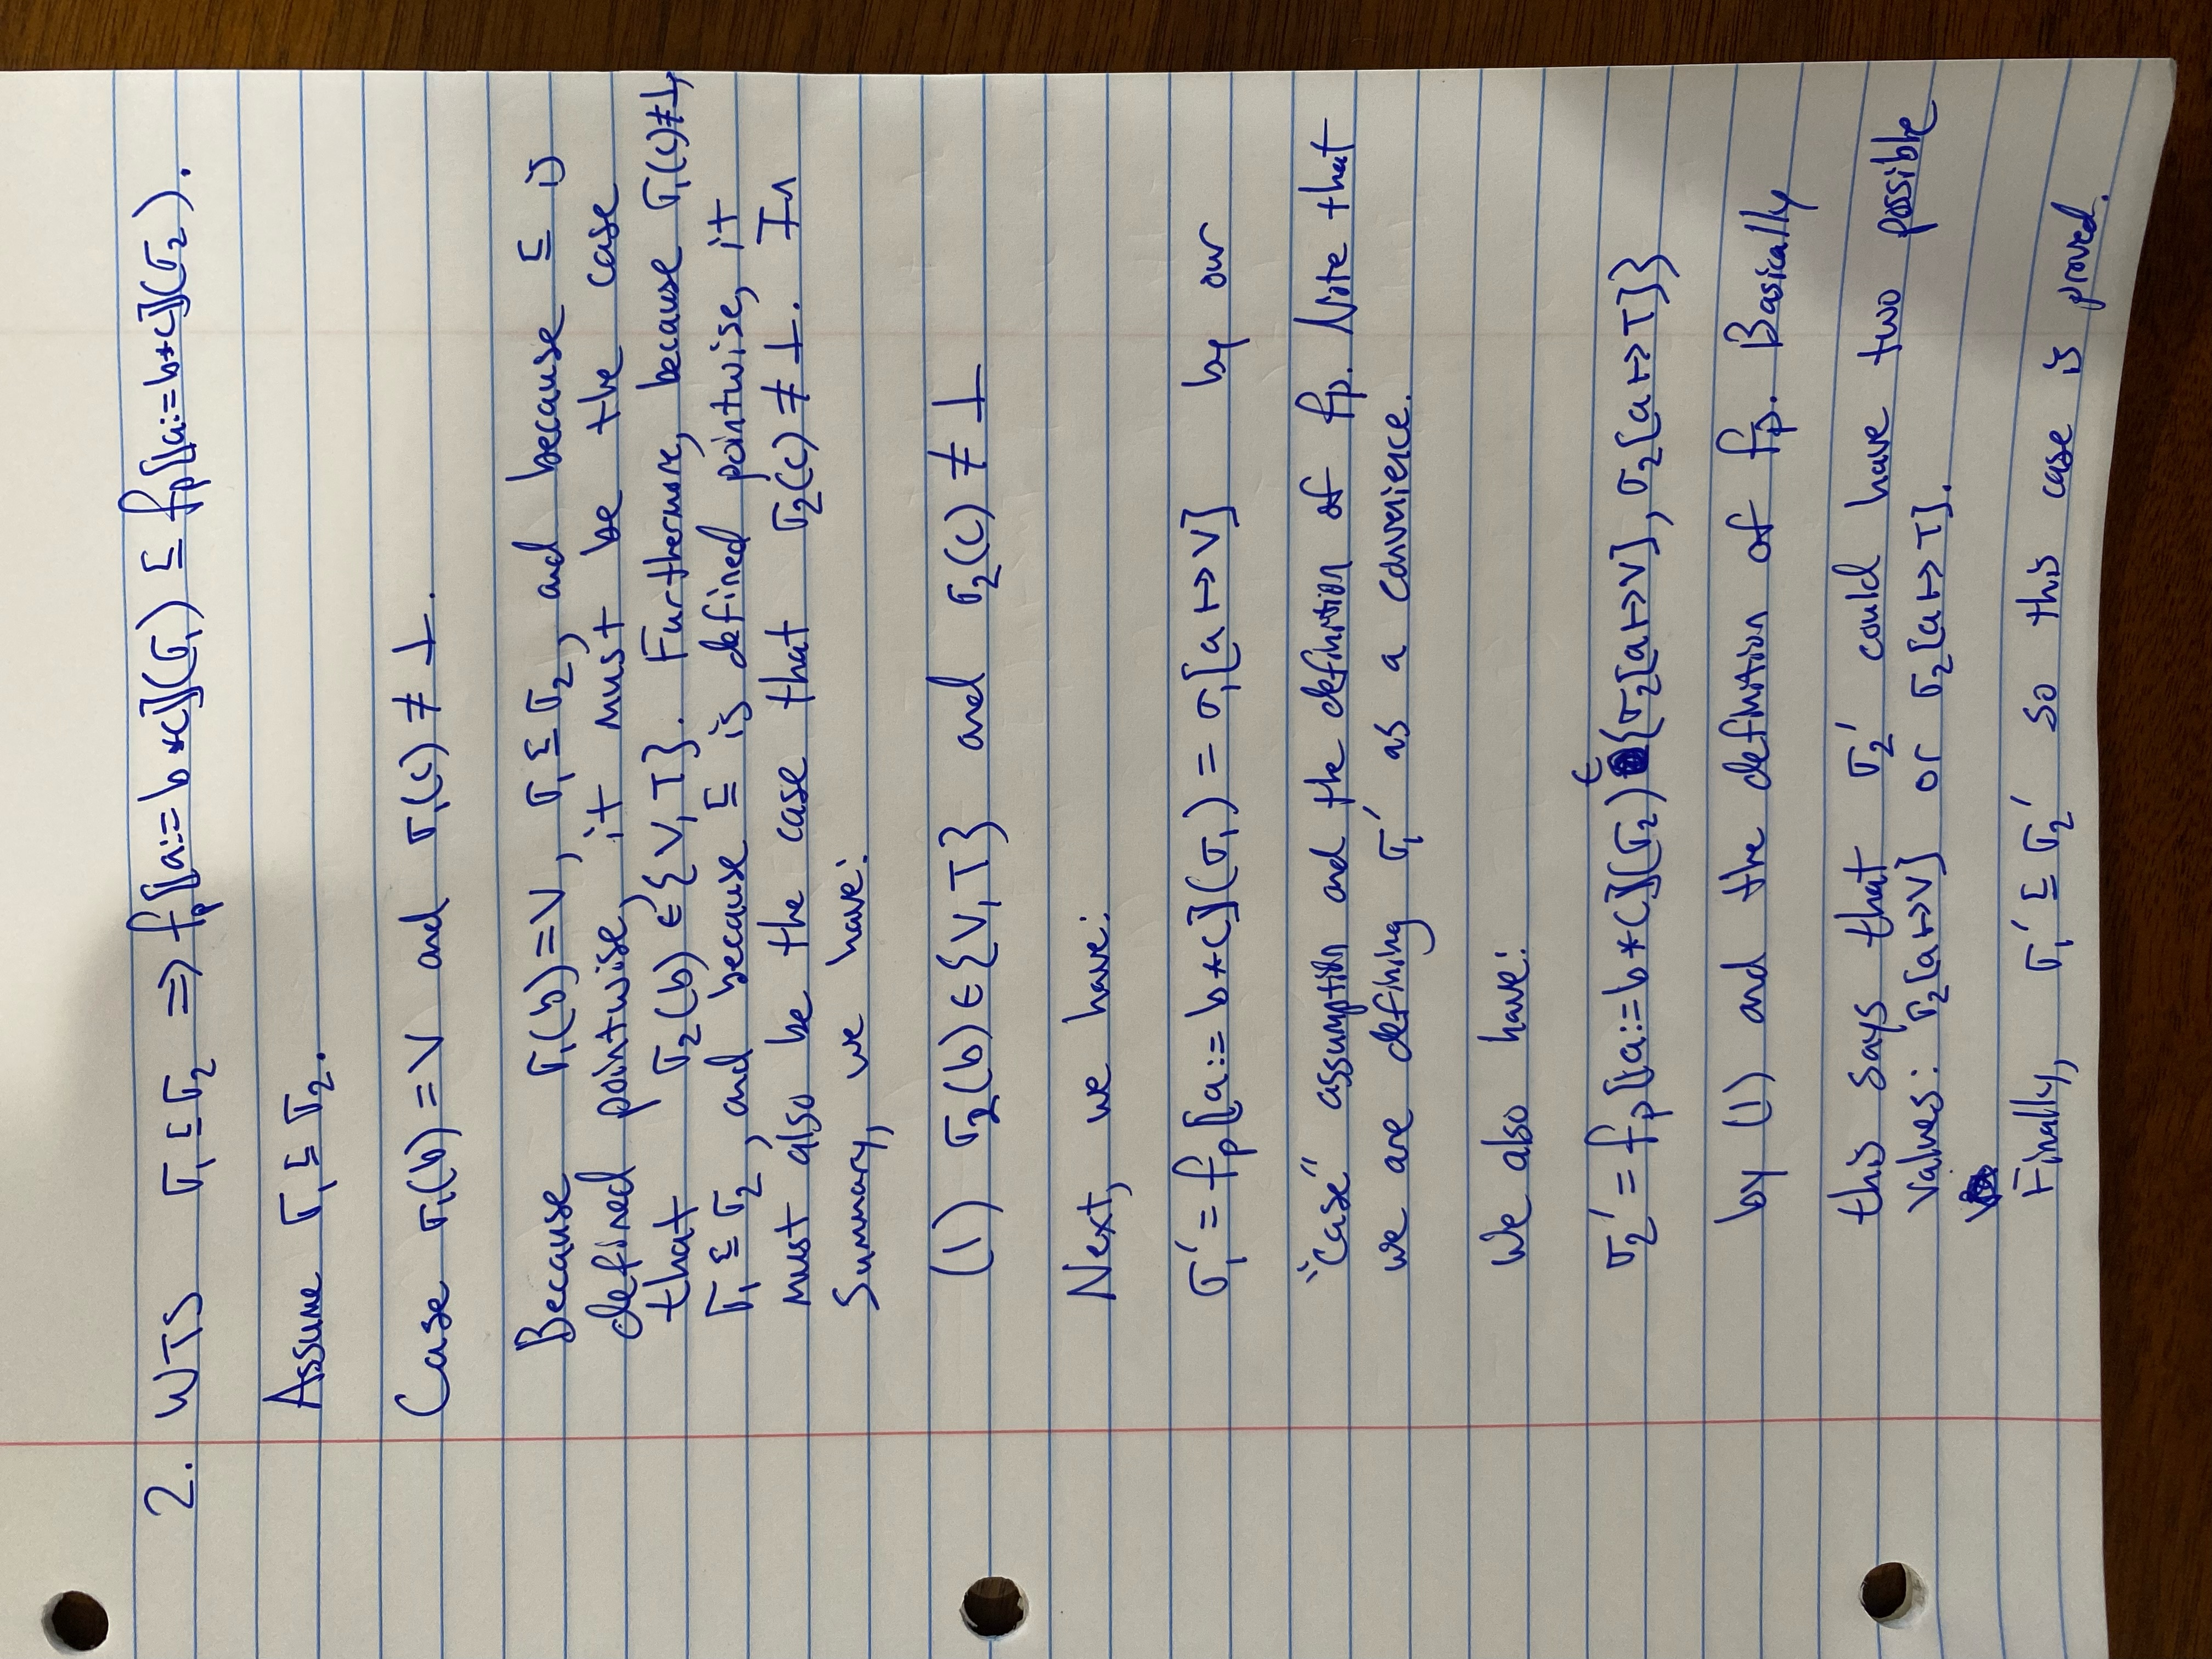 2. WTS σ₁ ⊑ σ₂ ⇒ fₚ⟦a:= b*c⟧(σ₁) ⊑ fₚ⟦a:=b*c⟧(σ₂).
Assume σ₁ ⊑ σ₂.
Case σ₁(b) = V and σ₁(c) ≠ ⊥.
Because σ₁(b)=V, σ₁ ⊑ σ₂, and because ⊑ is
defined pointwise, it must be the case
that σ₂(b) ∈ {V, T}. Furthermore, because σ₁(c)≠⊥,
σ₁ ⊑ σ₂, and because ⊑ is defined pointwise, it
must also be the case that σ₂(c) ≠ ⊥. In
Summary, we have:
(1) σ₂(b) ∈ {V, T} and σ₂(c) ≠ ⊥
Next, we have:
σ₁' = fₚ⟦a:= b*c⟧(σ₁) = σ₁[a ↦ V] by our
"Case" assumption and the definition of fₚ. Note that
we are defining σ₁' as a convenience.
We also have:
σ₂' = fₚ⟦a:=b*c⟧(σ₂) ∈ {σ₂[a↦V], σ₂[a↦T]}
by (1) and the definition of fₚ. Basically
this says that σ₂' could have two possible
values: σ₂[a↦V] or σ₂[a↦T].
Finally, σ₁' ⊑ σ₂' so this case is proved.